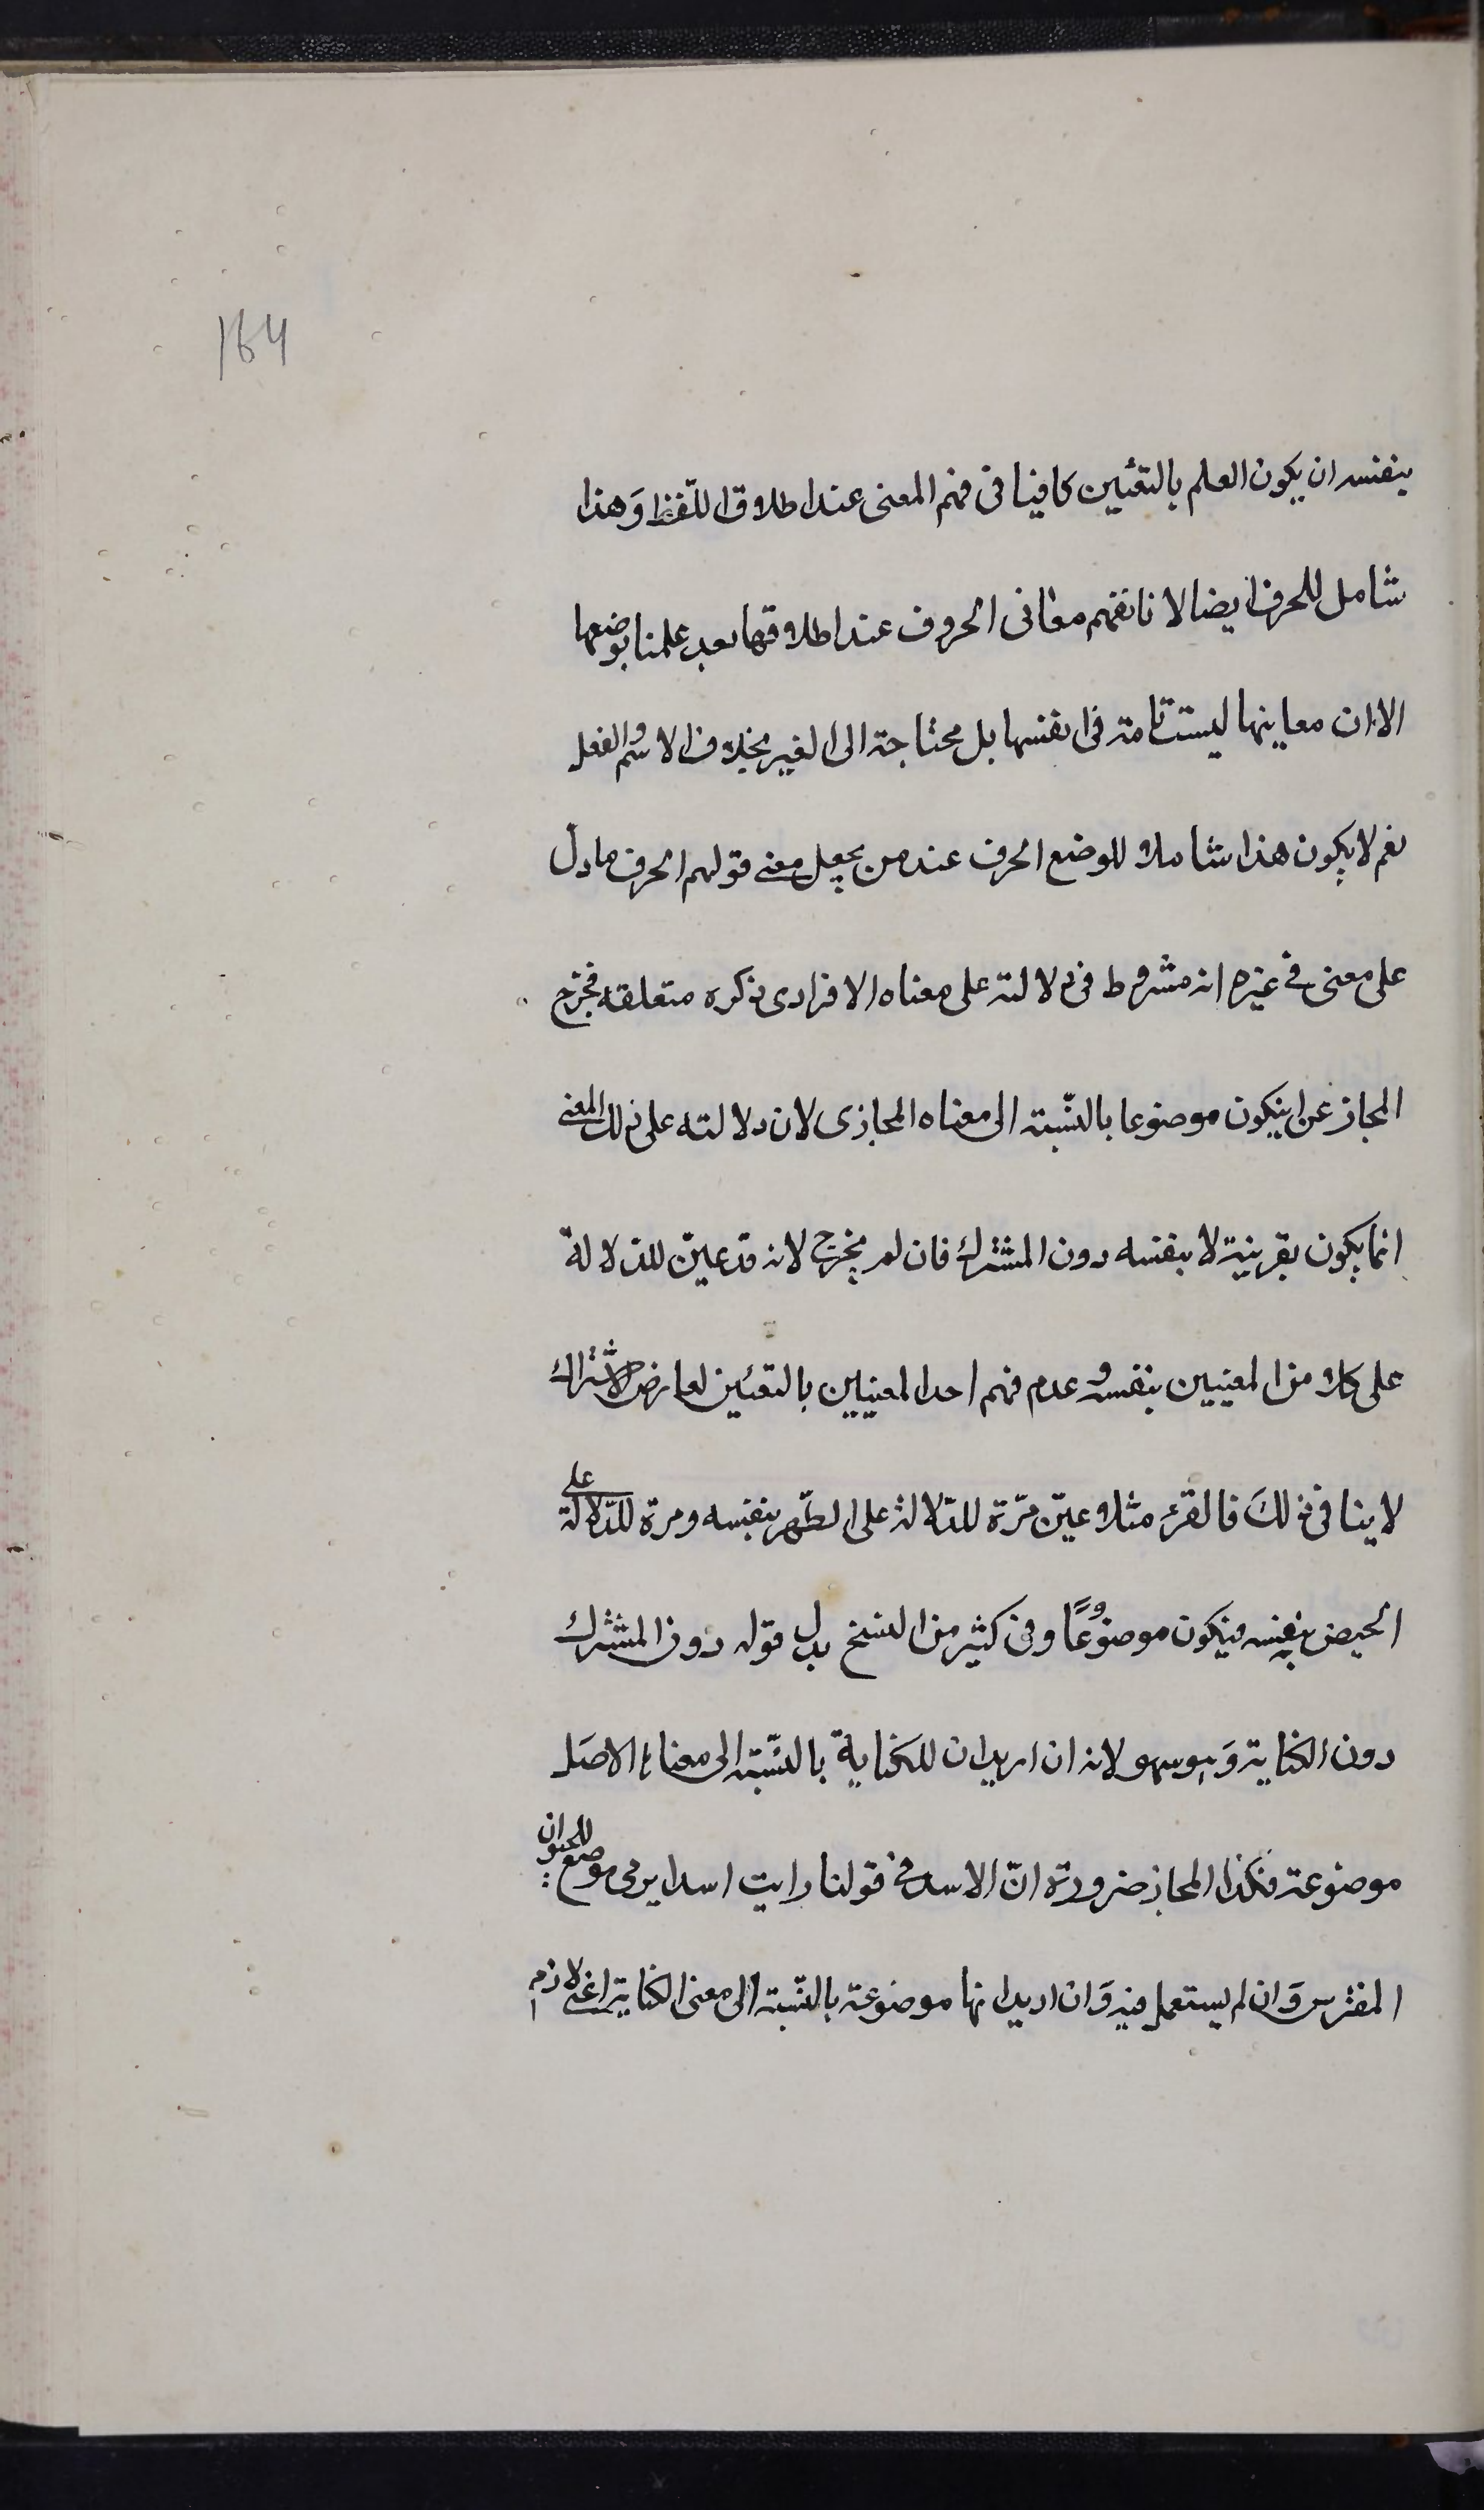 164
بنفسه ان يكون العلم بالتعيين كافيا فى فهم المعنى عند اطلاق اللّفظ وَهذا
شامل للحرف ايضا لانا نفهم معانى الحروف عند اطلاقها بعد علمنا بوضعها
الا ان معاينها ليست تامة فى انفسها بل محتاجة الى الغير بخلاف الاسم والفعل
نعم لا يكون هذا شاملا للوضع الحرف عند من يجعل معنى قولهم الحرف ما دلّ
على معنى فى غيره انه مشروط فى دلالته على معناه الافرادى ذكره متعلقه فخرج
المجاز عن ان يكون موضوعا بالنّسبة الى معناه المجازى لان دلالته على ذلك المعنى
انما يكون بقرينة لا بنفسه دون المشترك فان لم يخرج لانه قد عيّن للدلالة
على كلا من المعنيين بنفسه وعدم فهم احد المعنيين بالتعيين لعارض الاشتراك
لا ينافى ذلكَ فالقرء مثلا عيّن مرّة للدّلالة على الطّهر بنفسه ومرة للدّلالة على
الحيض بنفسه فيكون موضوعًا وفى كثير من النسخ بدل قوله دون المشترك
دون الكناية وَهو سهو لانه ان اريد ان للكناية بالنّسبة الى معناه الاصل
موضوعة فكذا المجاز ضرورة انّ الاسد فى قولنا رايت اسدا يرمى موضع للحيوان
المفترس وَان لم يستعمل فيه وَان اريد انها موضوعة بالنّسبة الى معنى الكناية اعنى لازم